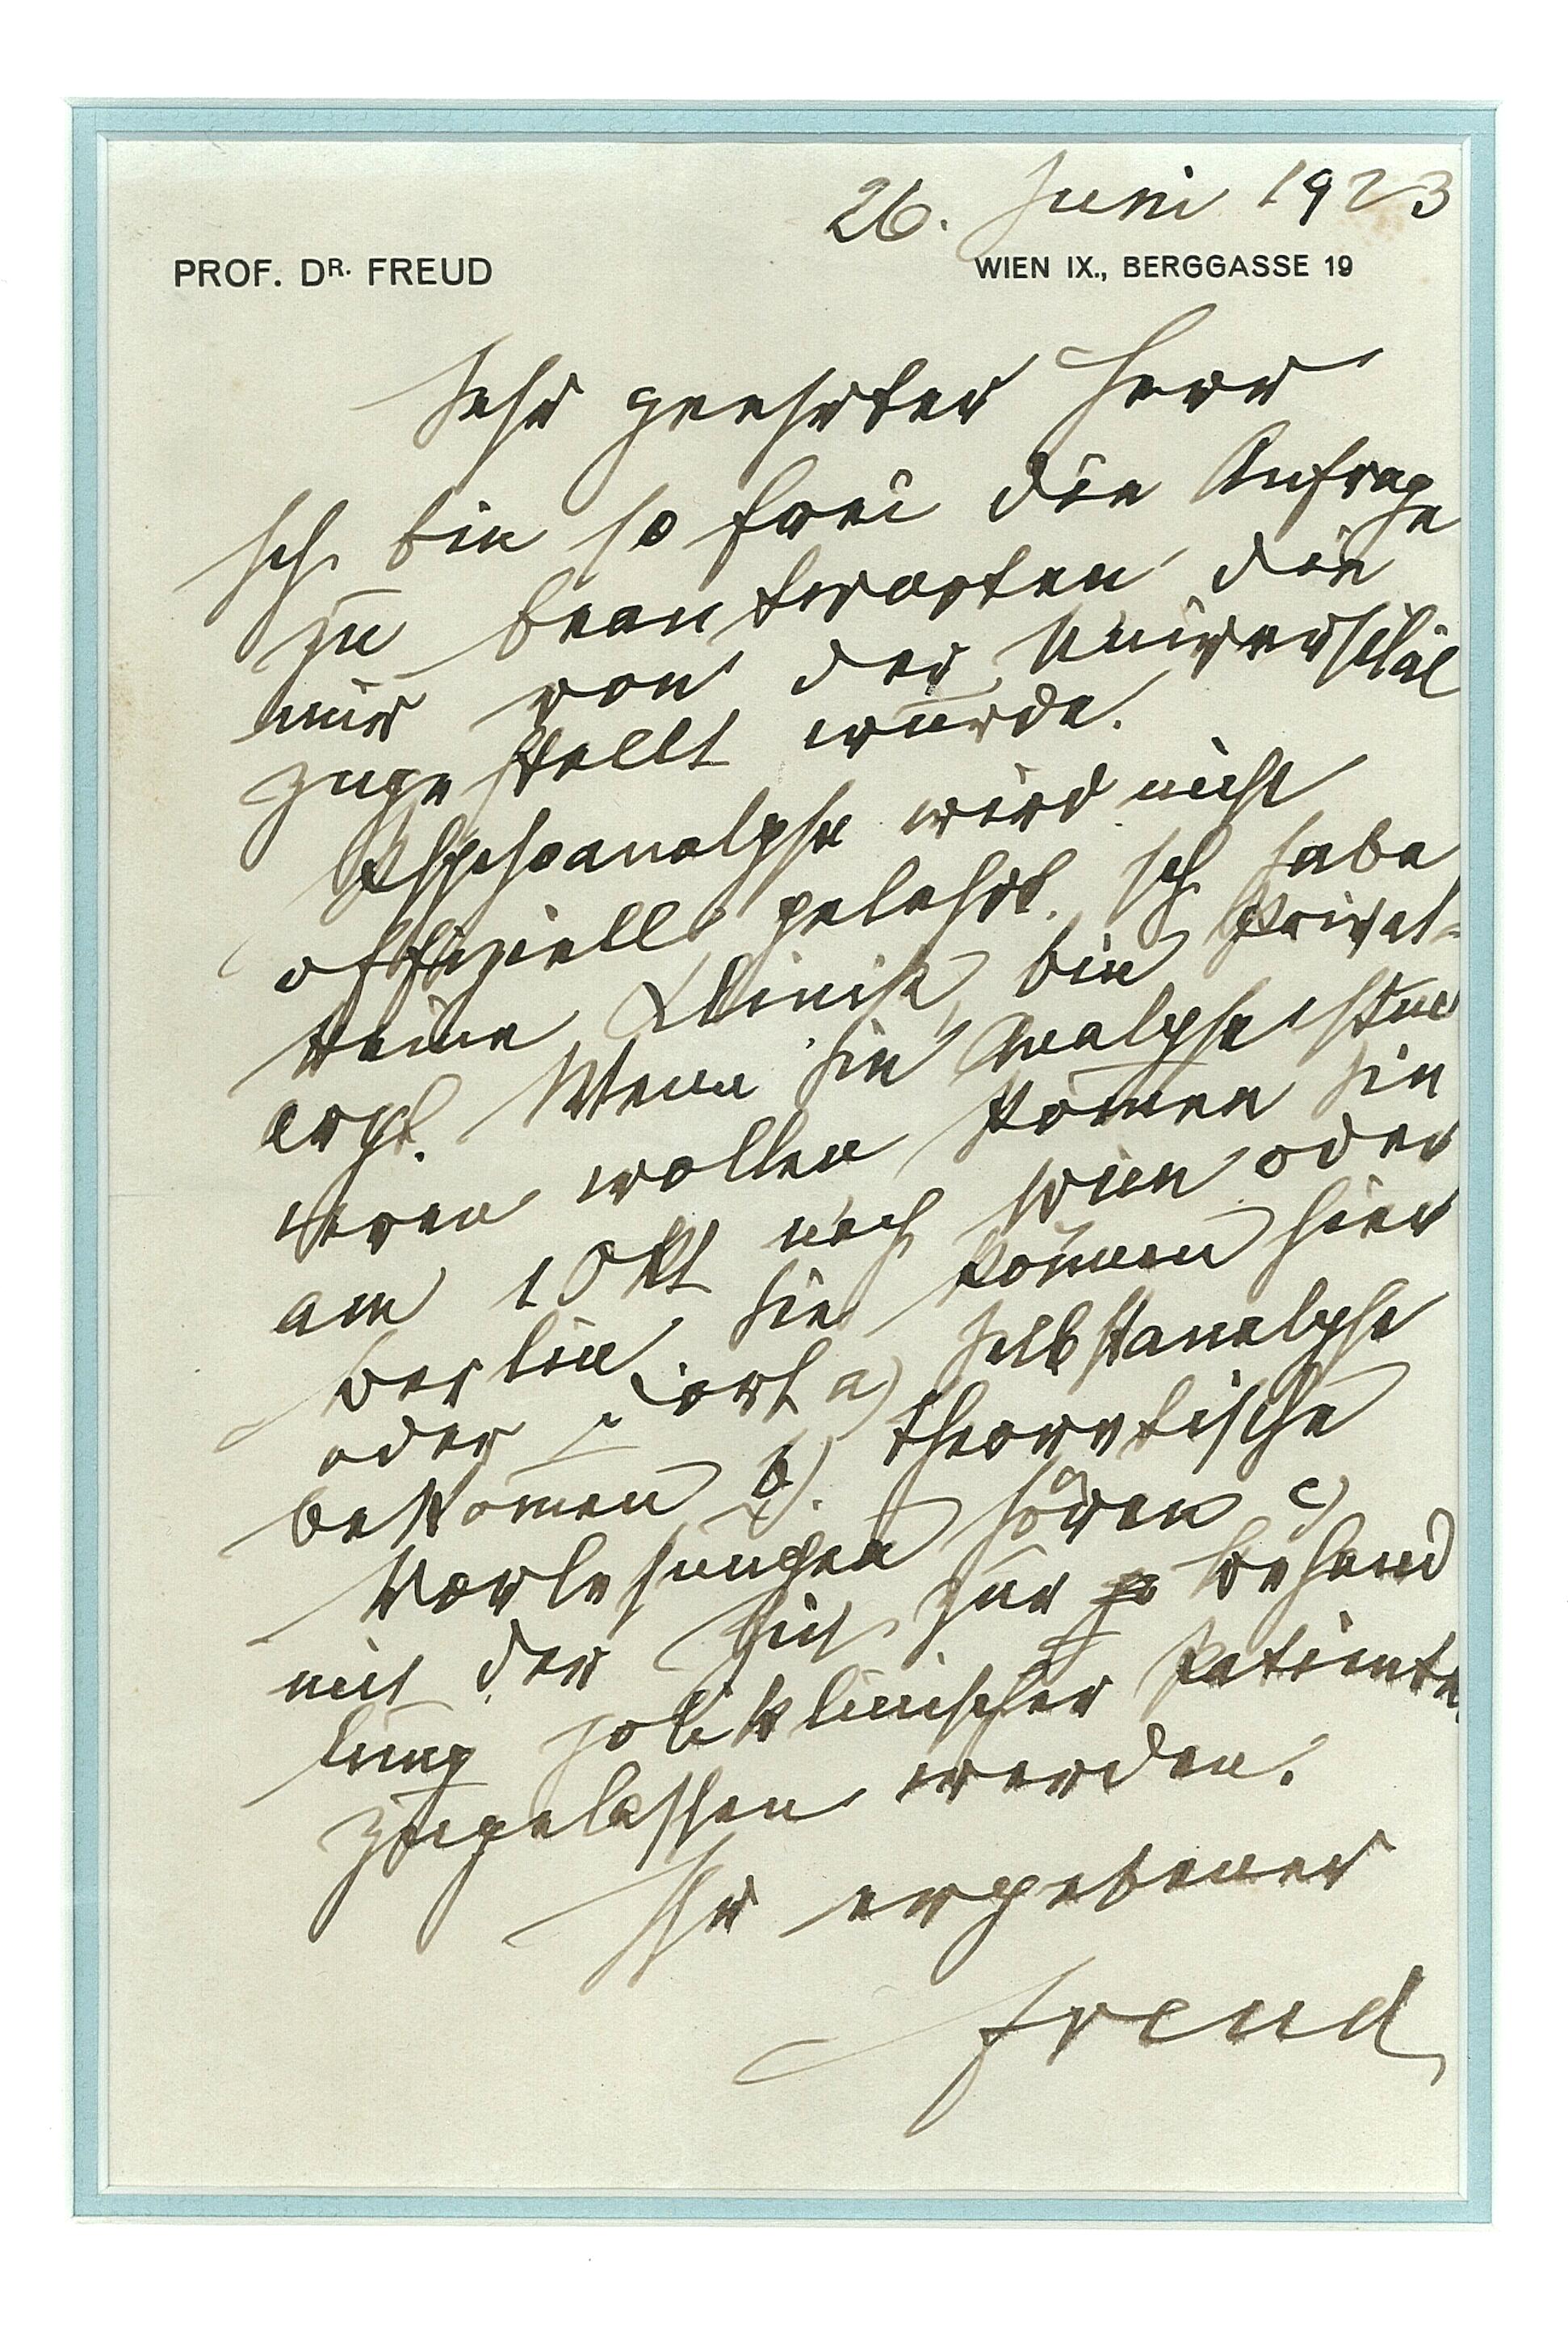 26. Juni 1923
PROF. DR. FREUD
WIEN IX., BERGGASSE 19
Sehr geehrter Herr
Ich bin so frei die Anfrage
zu beantworten die
mir von der Universität
zugestellt wurde.
Psychoanalyse wird nicht
offiziell gelehrt. Ich habe
keine Klinik, bin Privat-
arzt. Wenn Sie Analyse stud
ieren wollen kom̅en Sie
am 1 Okt nach Wien oder
Berlin. Sie können hier
oder dort a) Selbstanalyse
bekom̅en b). theoretische
Vorlesungen hören c)
mit der Zeit zur Behand
lung poliklinischer Patienten
zugelassen werden.
Ihr ergebener
Freud